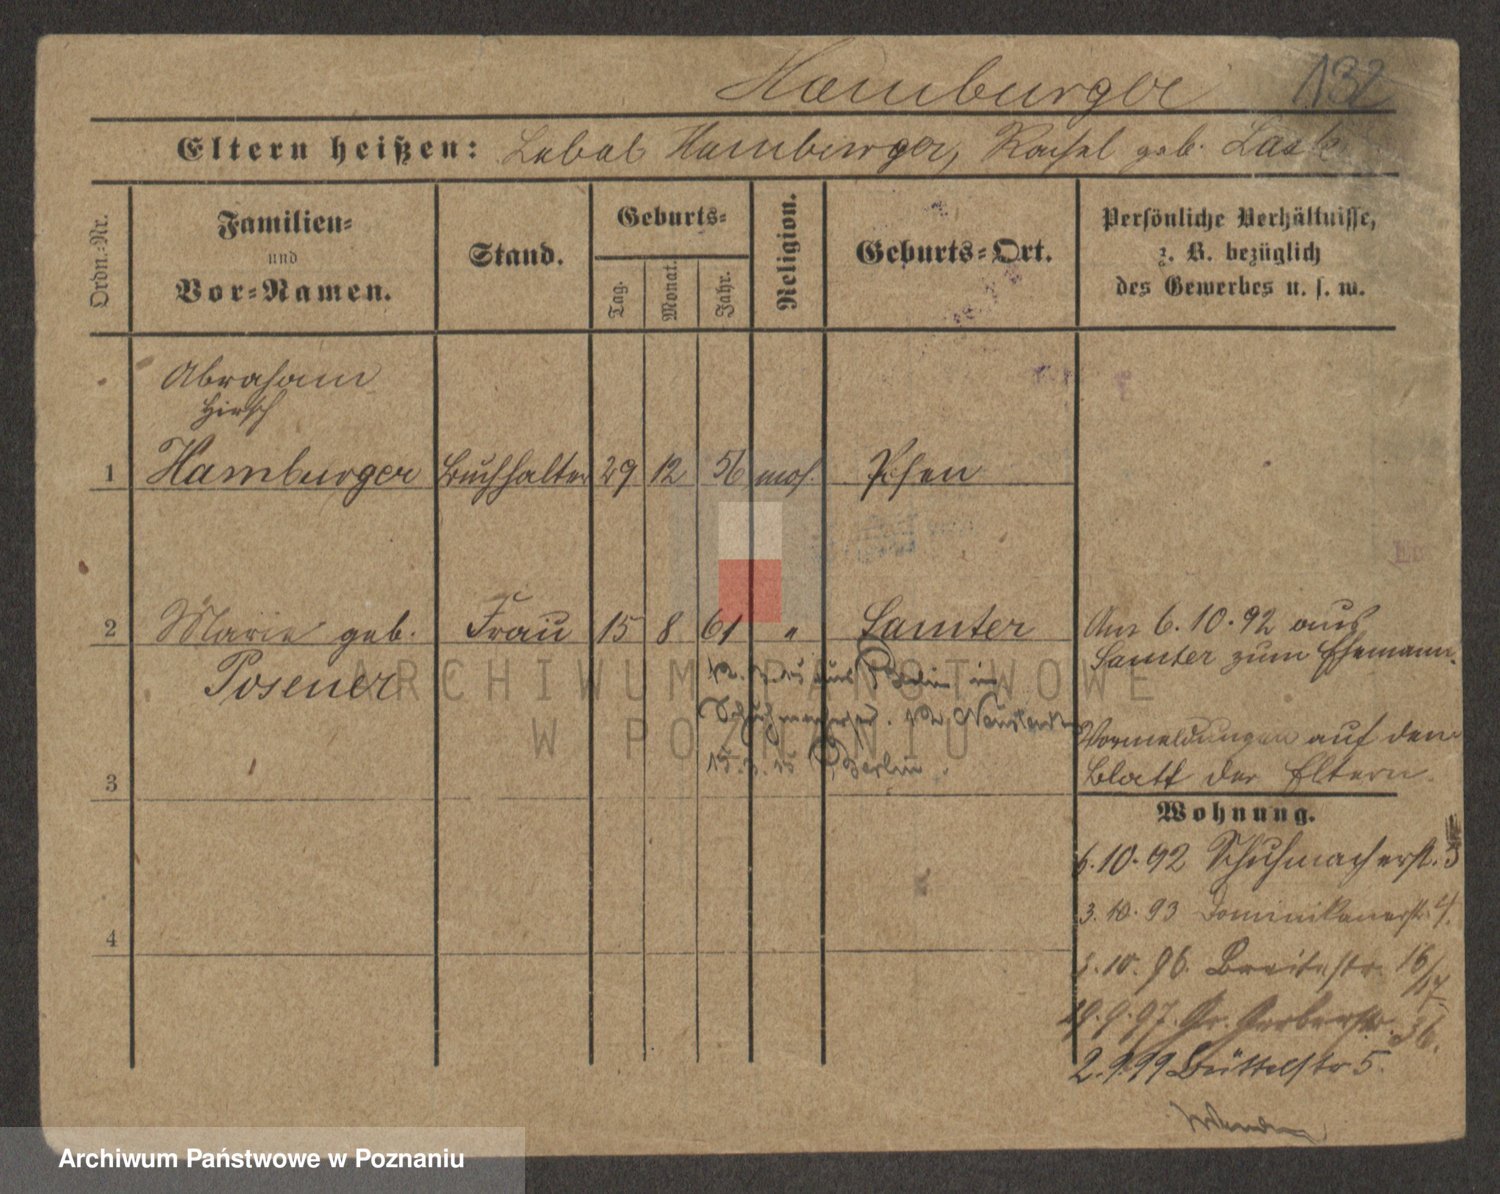 Hamburger 132
Eltern heißen: Lebal Hamburger, Rachel geb. Lask
Ordn.-Nr.
Familien-
und
Vor-Namen.
Stand.
Geburts-
Tag.
Monat.
Jahr.
Religion.
Geburts-Ort.
Persönliche Verhältnisse,
z. B. bezüglich
des Gewerbes u. s. w.
Abraham
Hirsch
1 Hamburger Buchhalter 29 12 56 mos. Posen
2 Marie geb. Frau 15 8 61 " Samter
Posener
Am 6.10.92 aus
Samter zum Ehemann.
aus Berlin in
15.3. Berlin.
Vormeldungen auf dem
Blatt der Eltern.
3
Wohnung.
6.10.92 Schuhmacherst. 3
3.10.93 Dominikanerstr. 4.
3.10.96. Breitestr. 16/17
19.9.97. Gr. Gerberstr. 36.
2.9.99 Büttelstr 5.
wenden
4
ARCHIWUM PAŃSTWOWE
W POZNANIU
Archiwum Państwowe w Poznaniu